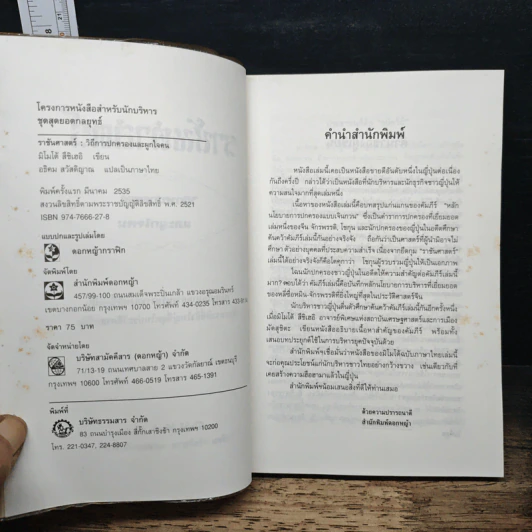 โครงการหนังสือสำหรับนักบริหาร
ชุดสุดยอดกลยุทธ์
ราชันศาสตร์ : วิถีการปกครองและผูกใจคน
อธิคม สวัสดิญาณ แปลเป็นภาษาไทย
พิมพ์ครั้งแรก มีนาคม 2535
สงวนลิขสิทธิ์ตามพระราชบัญญัติลิขสิทธิ์ พ.ศ. 2521
ISBN 974-7666-27-8
แบบปกและรูปเล่มโดย
ดอกหญ้ากราฟิก
จัดพิมพ์โดย
สำนักพิมพ์ดอกหญ้า
457/99-100 ถนนสมเด็จพระปิ่นเกล้า แขวงอรุณอมรินทร์
เขตบางกอกน้อย กรุงเทพฯ 10700 โทรศัพท์ 434-0235 โทรสาร
ราคา 75 บาท
จัดจำหน่ายโดย
บริษัทสามัคคีสาร (ดอกหญ้า) จำกัด
71/13-19 ถนนเทศบาลสาย 2 แขวงวัดกัลยาณ์ เขตธนบุรี
กรุงเทพฯ 10600 โทรศัพท์ 466-0519 โทรสาร 465-1391
พิมพ์ที่
บริษัทธรรมสาร จำกัด
83 ถนนบำรุงเมือง สี่กั๊กเสาชิงช้า กรุงเทพฯ 10200
โทร. 221-0347, 224-8807
คำนำสำนักพิมพ์
หนังสือเล่มนี้เคยเป็นหนังสือขายดีอันดับหนึ่งในญี่ปุ่นต่อเนื่อง
กันถึงครึ่งปี กล่าวได้ว่าเป็นหนังสือที่นักบริหารและนักธุรกิจชาวญี่ปุ่นให้
ความสนใจมากที่สุดเล่มหนึ่ง
เนื้อหาของหนังสือเล่มนี้คือบทสรุปแก่นแกนของคัมภีร์ "หลัก
นโยบายการปกครองแบบเจินกวน" ซึ่งเป็นตำราการปกครองที่เยี่ยมยอด
เล่มหนึ่งของจีน จักรพรรดิ โชกุน และนักปกครองของญี่ปุ่นในอดีตศึกษา
ค้นคว้าคัมภีร์เล่มนี้กันอย่างจริงจัง ถือกันว่าเป็นศาสตร์ที่ผู้นำมิอาจไม่
ศึกษา ตัวอย่างบุคคลที่ประสบความสำเร็จ เนื่องจากยึดกุม "ราชันศาสตร์"
เล่มนี้ได้อย่างจริงจังก็คือโตกุกาวา โชกุนผู้รวบรวมญี่ปุ่นให้เป็นเอกภาพ
ไฉนนักปกครองชาวญี่ปุ่นในอดีตให้ความสำคัญต่อคัมภีร์เล่มนี้
มาก? ตอบได้ว่า คัมภีร์เล่มนี้คือบันทึกหลักนโยบายการบริหารที่เยี่ยมยอด
ของหลี่ซื่อหมิน จักรพรรดิที่ยิ่งใหญ่ที่สุดในประวัติศาสตร์จีน
นักบริหารชาวญี่ปุ่นตื่นตัวศึกษาค้นคว้าคัมภีร์เล่มนี้กันอีกครั้งหนึ่ง
เขียนหนังสืออธิบายเนื้อหาสำคัญของคัมภีร์ พร้อมทั้ง
เสนอบทประยุกต์ใช้ในการบริหารยุคปัจจุบันด้วย
จะก่อคุณประโยชน์แก่นักบริหารชาวไทยอย่างกว้างขวาง เช่นเดียวกับที่
เคยสร้างความฮือฮามาแล้วในญี่ปุ่น
สำนักพิมพ์ขอน้อมเสนอสิ่งที่ดีให้ท่านเสมอ
ด้วยความปรารถนาดี
สำนักพิมพ์ดอกหญ้า